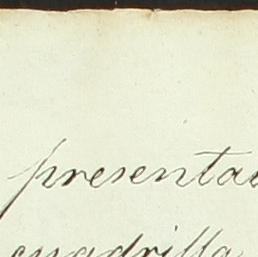 presentac
cuadrilla